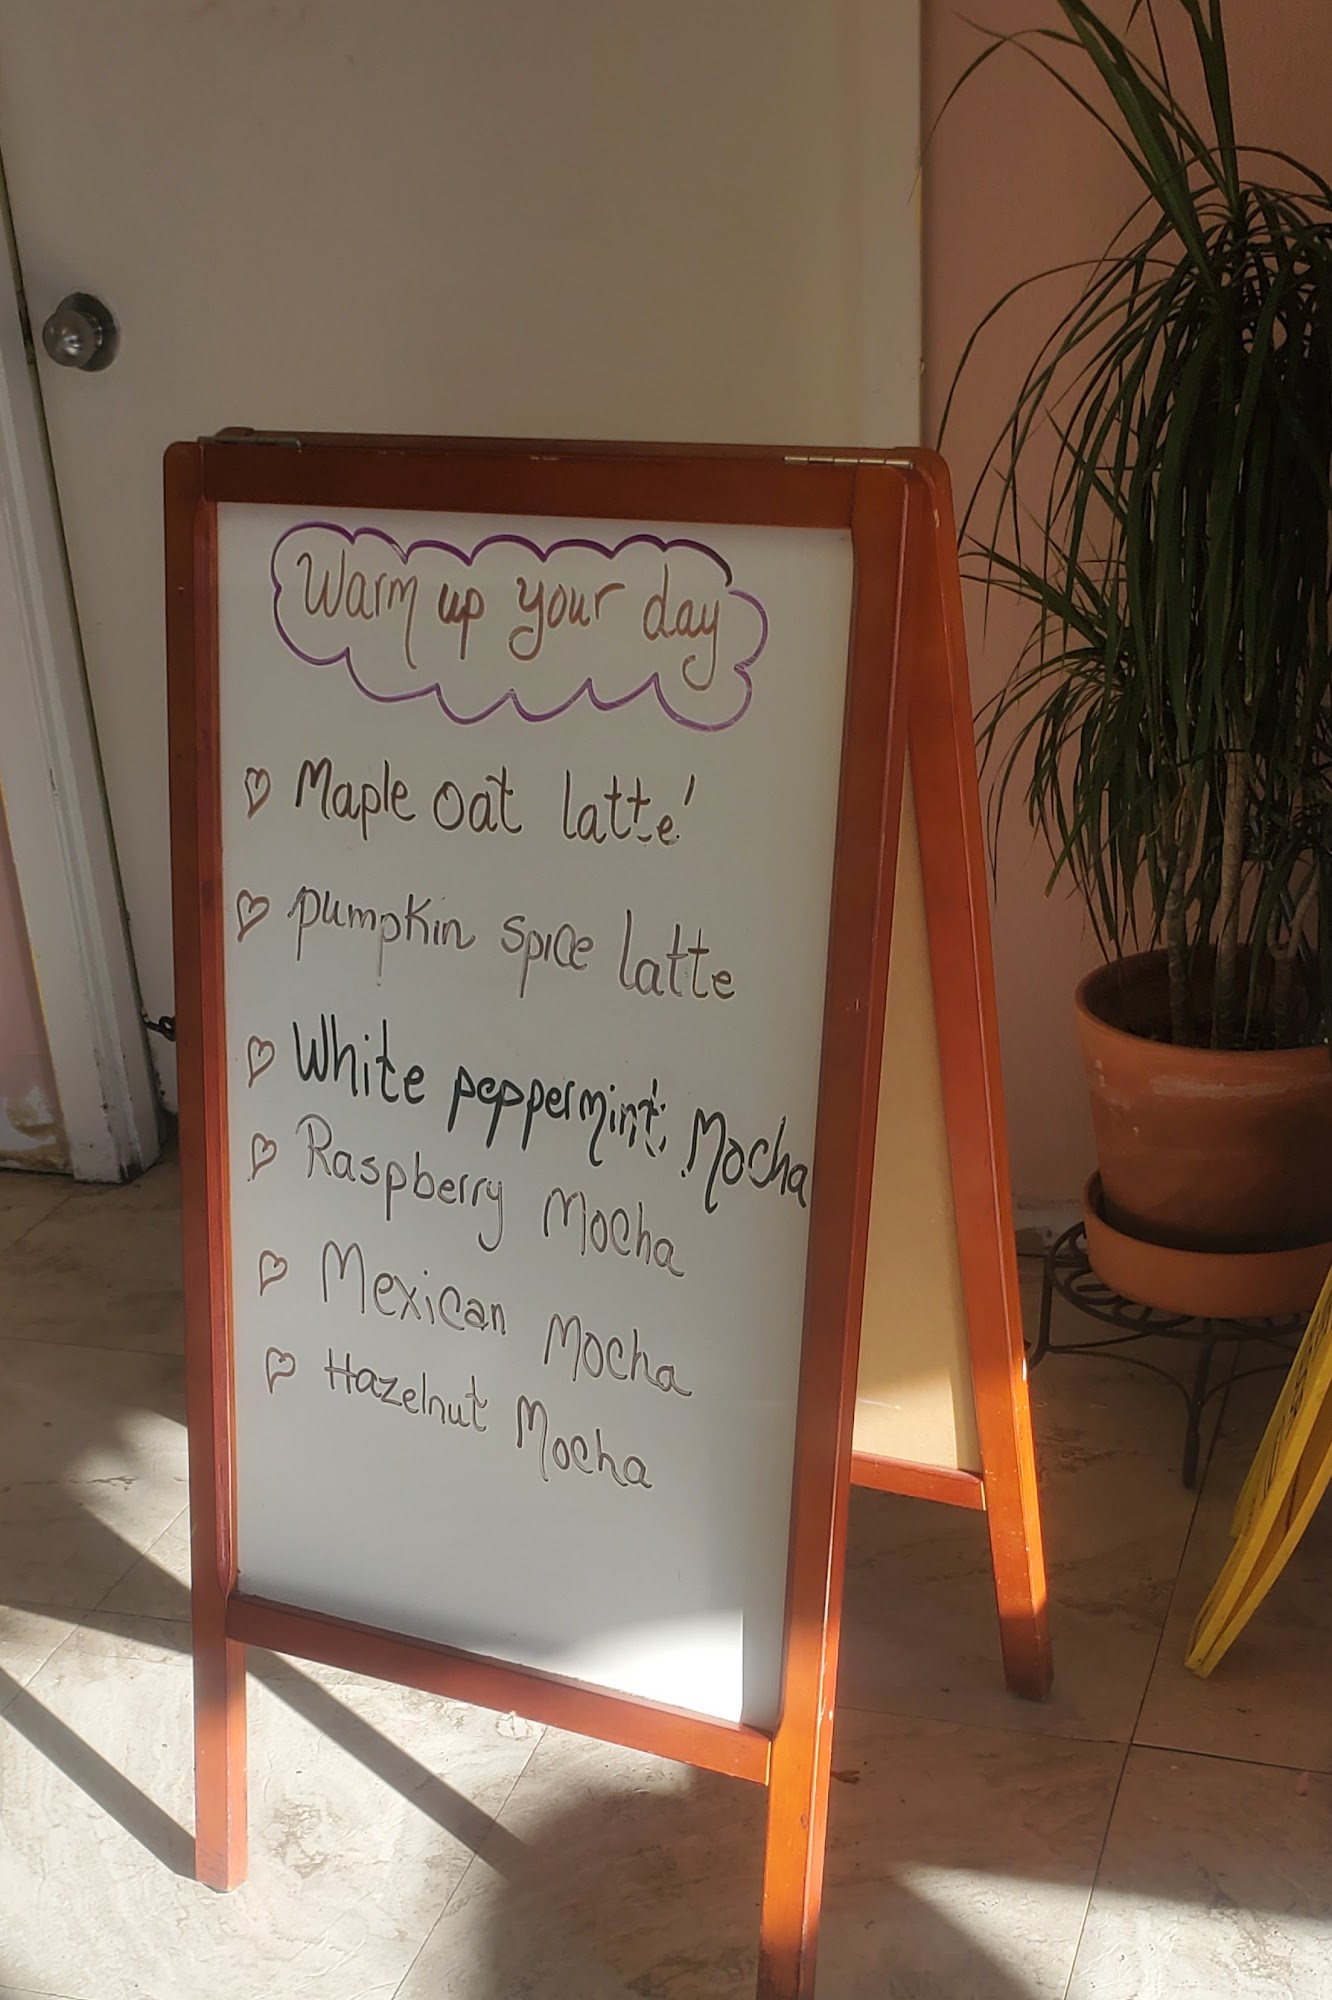 Warm up your day
Maple oat latte'
pumpkin spice latte
White peppermint Mocha
Raspberry Mocha
Mexican Mocha
Hazelnut Mocha